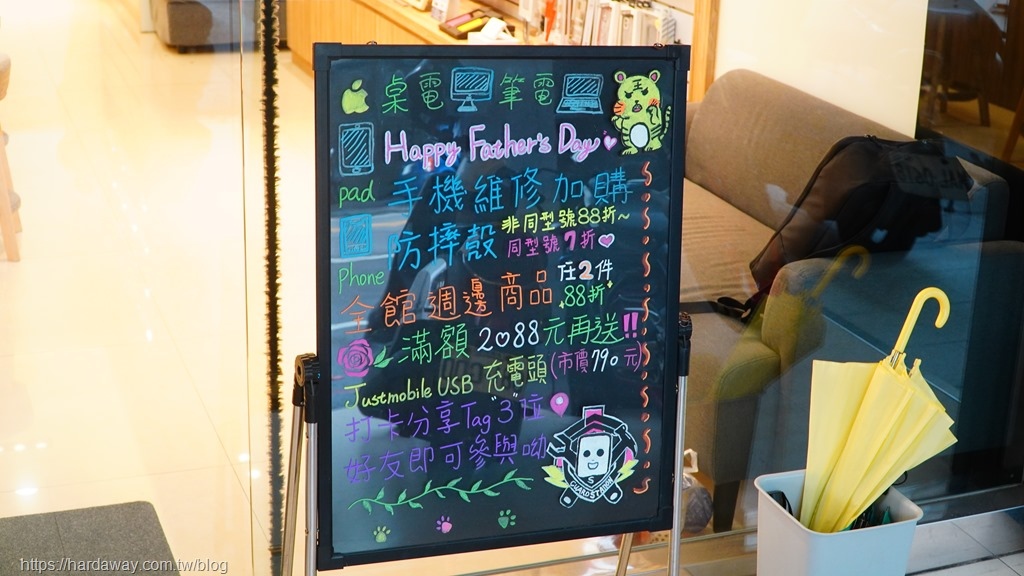 桌電 筆電
Happy Father's Day
pad 手機維修加購
防摔殼 非同型號88折~
同型號7折
Phone
全館週邊商品 任2件
88折
滿額2088元再送!!
Justmobile USB 充電頭(市價790元)
打卡分享Tag"3"位
好友即可參與呦
https://hardaway.com.tw/blog